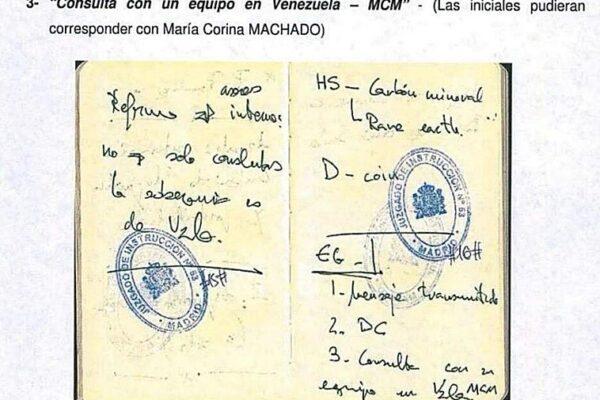 3- "Consulta con un equipo en Venezuela – MCM" - (Las iniciales pudieran
corresponder con María Corina MACHADO)
no solo consultas
de Vzla.
JUZGADO DE INSTRUCCIÓN Nº 53
MADRID
#15#
HS - Carbón mineral
Rare earth.
D - coin
JUZGADO DE INSTRUCCIÓN Nº 53
MADRID
#16#
EG - 1.
1. mensaje transmitido
2. DC
3. Consulta con un
equipo en Vzla MCM